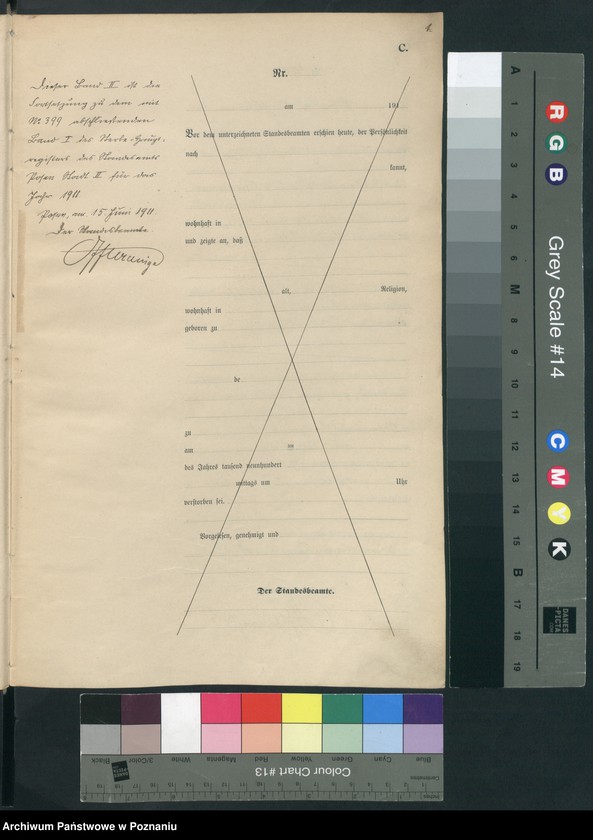 1.
C.
Dieser Band II ist die
Fortsetzung zu dem mit
Nr 399 abschließenden
Band I des Sterbe-Haupt-
registers des Standesamts
Posen Stadt II für das
Jahr 1911.
Posen, am 15 Juni 1911.
Der Standesbeamte.
Nr.
am 191
Vor dem unterzeichneten Standesbeamten erschien heute, der Persönlichkeit
nach
kannt,
wohnhaft in
und zeigte an, daß
alt, Religion,
wohnhaft in
geboren zu
de
zu
am
des Jahres tausend neunhundert
mittags um Uhr
verstorben sei.
Vorgelesen, genehmigt und
Der Standesbeamte.
A 1 2 3 4 5 6 M 8 9 10 11 12 13 14 15 B 17 18 19
R G B
Grey Scale #14
C M Y K
DANES
PICTA
.COM
Blue Cyan Green Yellow Red Magenta White 3/Color Black
Colour Chart #13
Centimetres
Inches
DANES
PICTA
Archiwum Państwowe w Poznaniu